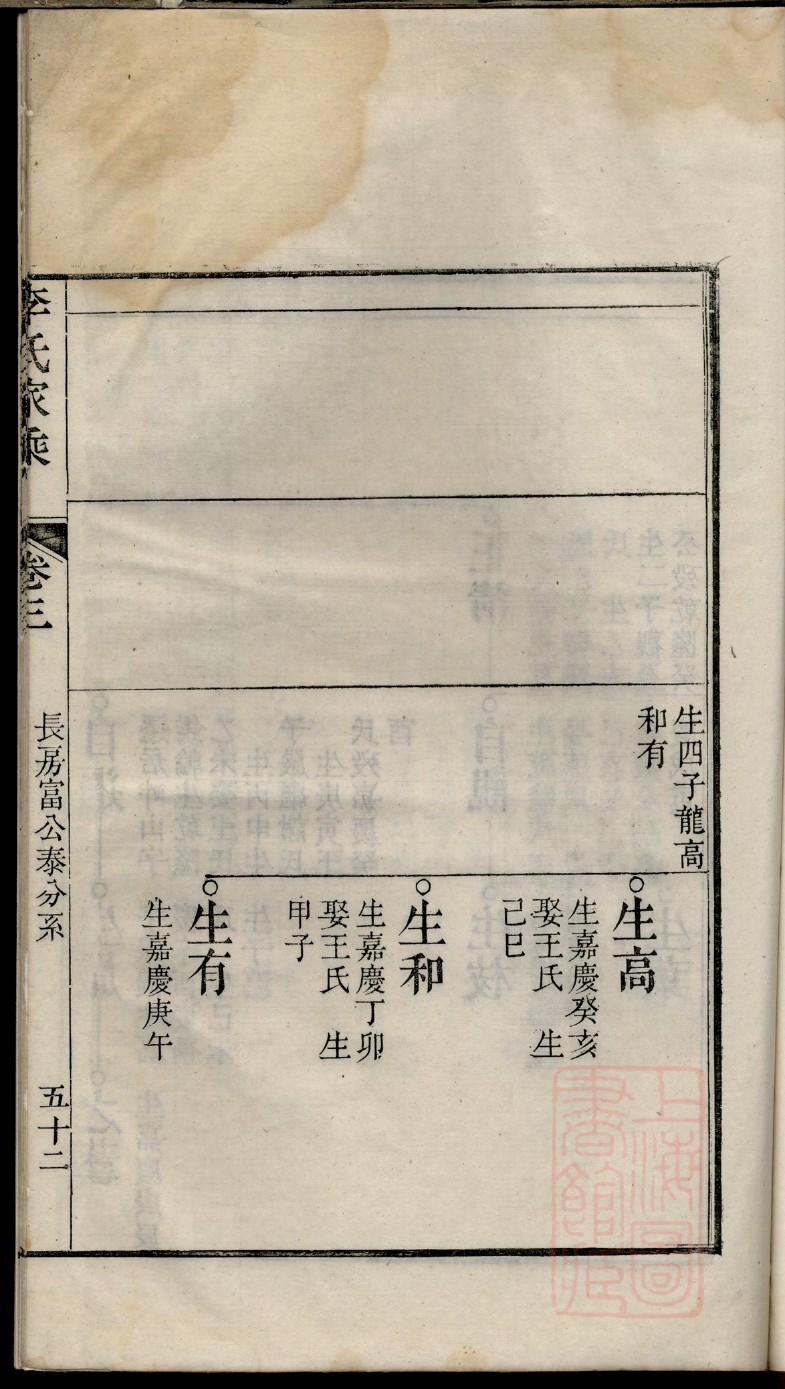 生四子龍高
和有
生高
生嘉慶癸亥
娶王氏　生
己巳
生和
生嘉慶丁卯
娶王氏　生
甲子
生有
生嘉慶庚午
李氏家乘
卷三
長房富公泰分系
五十二
上海圖
書館藏